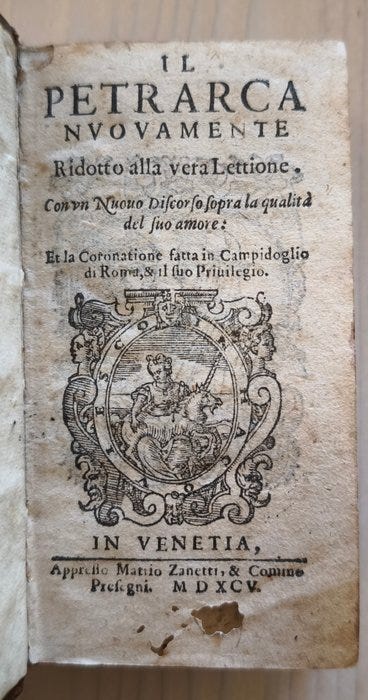 IL
PETRARCA
NVOVAMENTE
Ridotto alla vera Lettione.
Con vn Nuouo Discorso sopra la qualità
del suo amore:
Et la Coronatione fatta in Campidoglio
di Roma, & il suo Priuilegio.
IN VENETIA,
Appresso Mattio Zanetti, & Comino
Presegni. M D XCV.